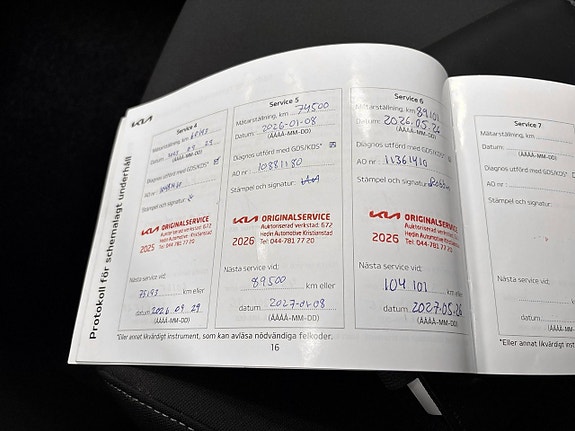 Protokoll för schemalagt underhåll
KIA
Service 4
Mätarställning, km 60193
Datum
(ÅÅÅÅ-MM-DD)
Diagnos utförd med GDS/KDS*
AO nr
Stämpel och signatur:
KIA ORIGINALSERVICE
Auktoriserad verkstad: 672
Hedin Automotive Kristianstad
2025 Tel: 044-781 77 20
Nästa service vid:
75193 km eller
datum 2026.09.29
(ÅÅÅÅ-MM-DD)
Service 5
Mätarställning, km 74500
Datum 2026-01-08
(ÅÅÅÅ-MM-DD)
Diagnos utförd med GDS/KDS*
AO nr 10881180
Stämpel och signatur:
KIA ORIGINALSERVICE
Auktoriserad verkstad: 672
Hedin Automotive Kristianstad
2026 Tel: 044-781 77 20
Nästa service vid:
89500
km eller
datum 2027-01-08
(ÅÅÅÅ-MM-DD)
Service 6
Mätarställning, km 89101
Datum 2026.05.26
(ÅÅÅÅ-MM-DD)
Diagnos utförd med GDS/KDS*
AO nr 11361410
Stämpel och signatur:
KIA ORIGINALSERVICE
Auktoriserad verkstad: 672
Hedin Automotive Kristianstad
2026 Tel: 044-781 77 20
Nästa service vid:
104 101
km eller
datum 2027.05.26
(ÅÅÅÅ-MM-DD)
*Eller annat likvärdigt instrument, som kan avläsa nödvändiga felkoder.
16
Service 7
Mätarställning, km
Datum
(ÅÅÅÅ-MM-DD)
Diagnos utförd med GDS/KDS*
AO nr
Stämpel och signatur:
Nästa service vid:
km eller
datum
(ÅÅÅÅ-MM-DD)
*Eller annat likvärdigt instrument